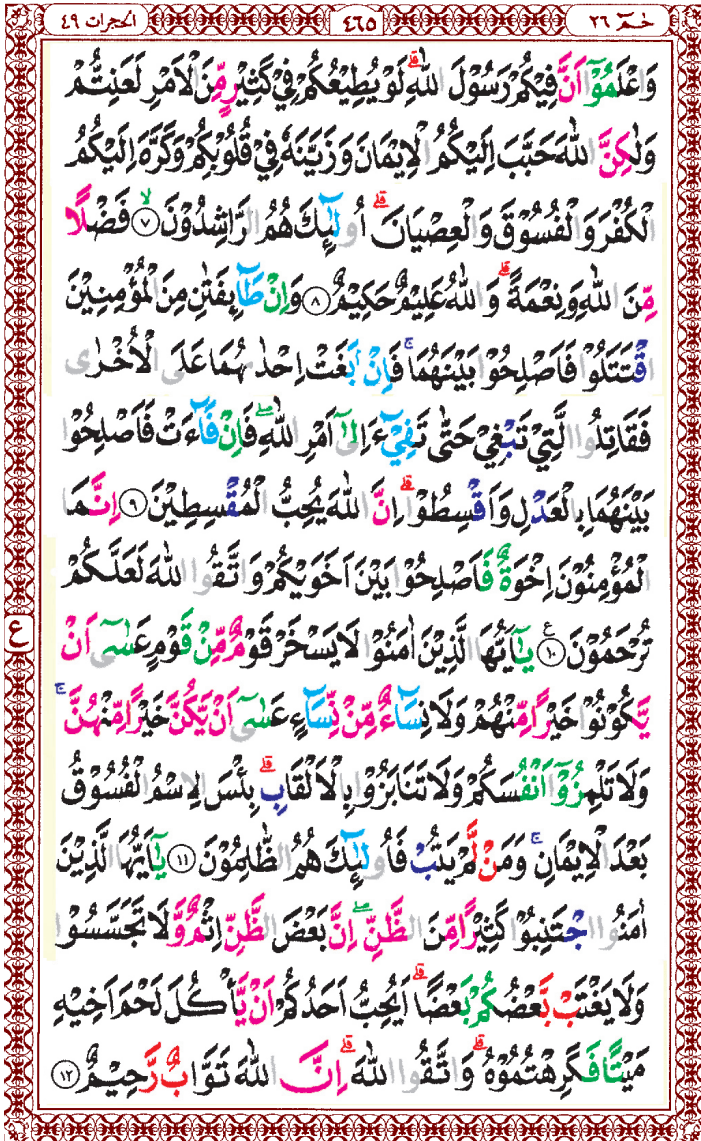 حٰمٓ ٢٦ ٤٦٥ الحجرات ٤٩
وَاعْلَمُوْۤا اَنَّ فِيْكُمْ رَسُوْلَ اللّٰهِ ؕ لَوْ يُطِيْعُكُمْ فِيْ كَثِيْرٍ مِّنَ الْاَمْرِ لَعَنِتُّمْ
وَلٰكِنَّ اللّٰهَ حَبَّبَ اِلَيْكُمُ الْاِيْمَانَ وَزَيَّنَهٗ فِيْ قُلُوْبِكُمْ وَكَرَّهَ اِلَيْكُمُ
الْكُفْرَ وَالْفُسُوْقَ وَالْعِصْيَانَ ؕ اُولٰٓئِكَ هُمُ الرَّاشِدُوْنَ ۙ ﴿٧﴾ فَضْلًا
مِّنَ اللّٰهِ وَنِعْمَةً ؕ وَاللّٰهُ عَلِيْمٌ حَكِيْمٌ ﴿٨﴾ وَاِنْ طَآئِفَتٰنِ مِنَ الْمُؤْمِنِيْنَ
اقْتَتَلُوْا فَاَصْلِحُوْا بَيْنَهُمَا ۚ فَاِنْۢ بَغَتْ اِحْدٰىهُمَا عَلَى الْاُخْرٰى
فَقَاتِلُوا الَّتِيْ تَبْغِيْ حَتّٰى تَفِيْٓءَ اِلٰٓى اَمْرِ اللّٰهِ ۚ فَاِنْ فَآءَتْ فَاَصْلِحُوْا
بَيْنَهُمَا بِالْعَدْلِ وَاَقْسِطُوْا ؕ اِنَّ اللّٰهَ يُحِبُّ الْمُقْسِطِيْنَ ﴿٩﴾ اِنَّمَا
الْمُؤْمِنُوْنَ اِخْوَةٌ فَاَصْلِحُوْا بَيْنَ اَخَوَيْكُمْ وَاتَّقُوا اللّٰهَ لَعَلَّكُمْ
تُرْحَمُوْنَ ﴿١٠﴾ ع يٰۤاَيُّهَا الَّذِيْنَ اٰمَنُوْا لَا يَسْخَرْ قَوْمٌ مِّنْ قَوْمٍ عَسٰۤى اَنْ
ع
يَّكُوْنُوْا خَيْرًا مِّنْهُمْ وَلَا نِسَآءٌ مِّنْ نِّسَآءٍ عَسٰۤى اَنْ يَّكُنَّ خَيْرًا مِّنْهُنَّ ۚ
وَلَا تَلْمِزُوْۤا اَنْفُسَكُمْ وَلَا تَنَابَزُوْا بِالْاَلْقَابِ ؕ بِئْسَ الِاسْمُ الْفُسُوْقُ
بَعْدَ الْاِيْمَانِ ۚ وَمَنْ لَّمْ يَتُبْ فَاُولٰٓئِكَ هُمُ الظّٰلِمُوْنَ ﴿١١﴾ يٰۤاَيُّهَا الَّذِيْنَ
اٰمَنُوا اجْتَنِبُوْا كَثِيْرًا مِّنَ الظَّنِّ ۫ اِنَّ بَعْضَ الظَّنِّ اِثْمٌ وَّلَا تَجَسَّسُوْا
وَلَا يَغْتَبْ بَّعْضُكُمْ بَعْضًا ؕ اَيُحِبُّ اَحَدُكُمْ اَنْ يَّاْكُلَ لَحْمَ اَخِيْهِ
مَيْتًا فَكَرِهْتُمُوْهُ ؕ وَاتَّقُوا اللّٰهَ ؕ اِنَّ اللّٰهَ تَوَّابٌ رَّحِيْمٌ ﴿١٢﴾